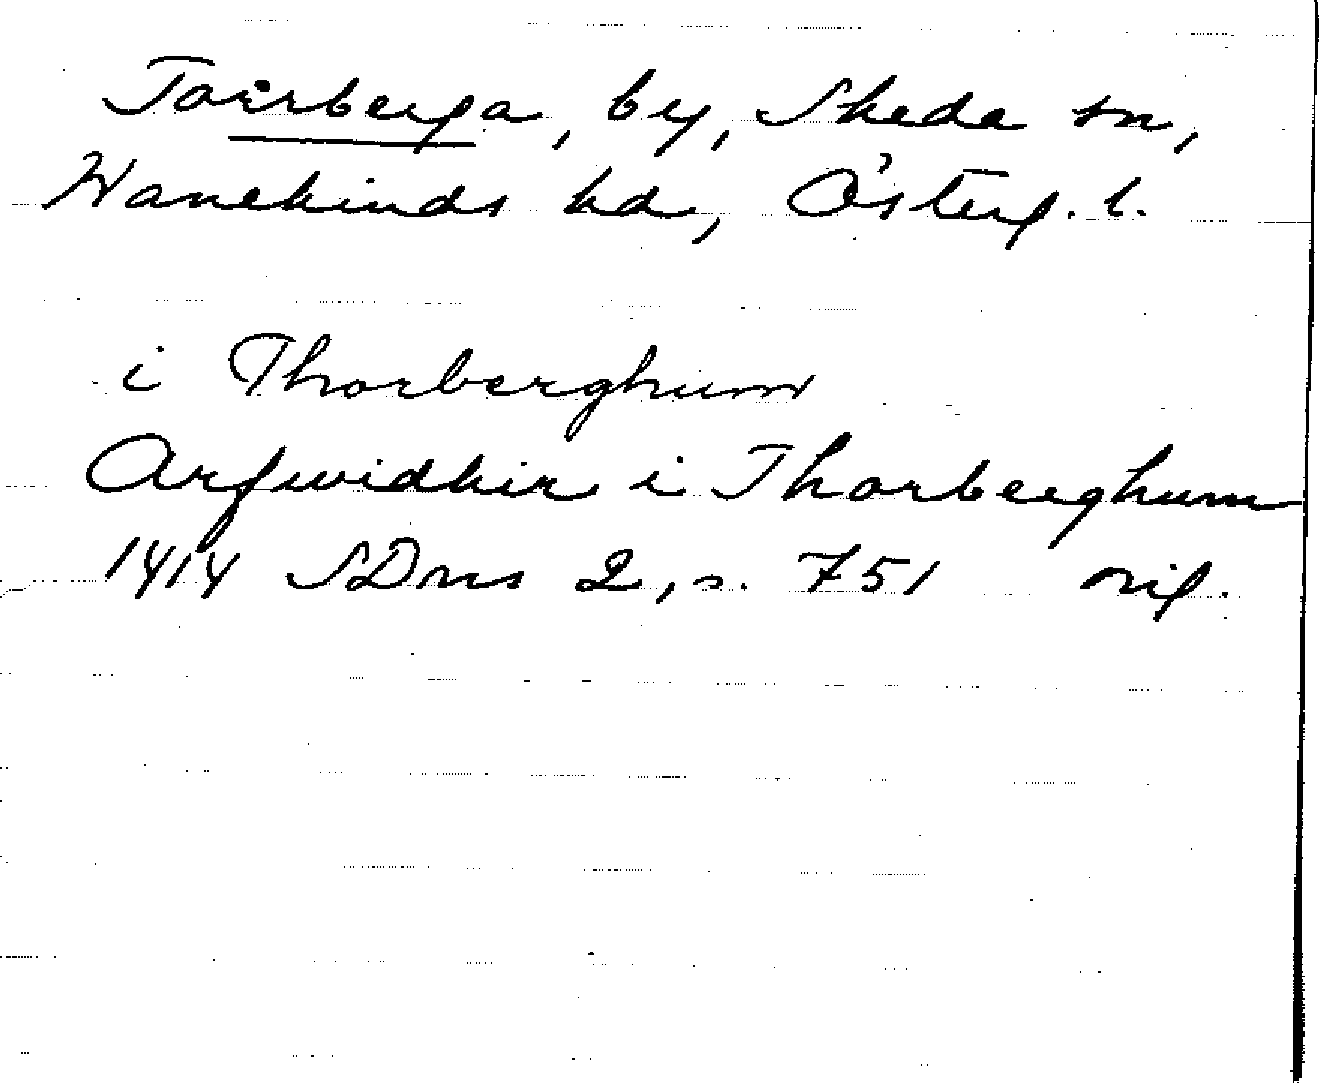 Torrberga, by, Skeda sn,
Hanekinds hd, Österg. l.
i Thorberghum
Arfwidhir i Thorberghum
1414 SDns 2, s. 751 orig.